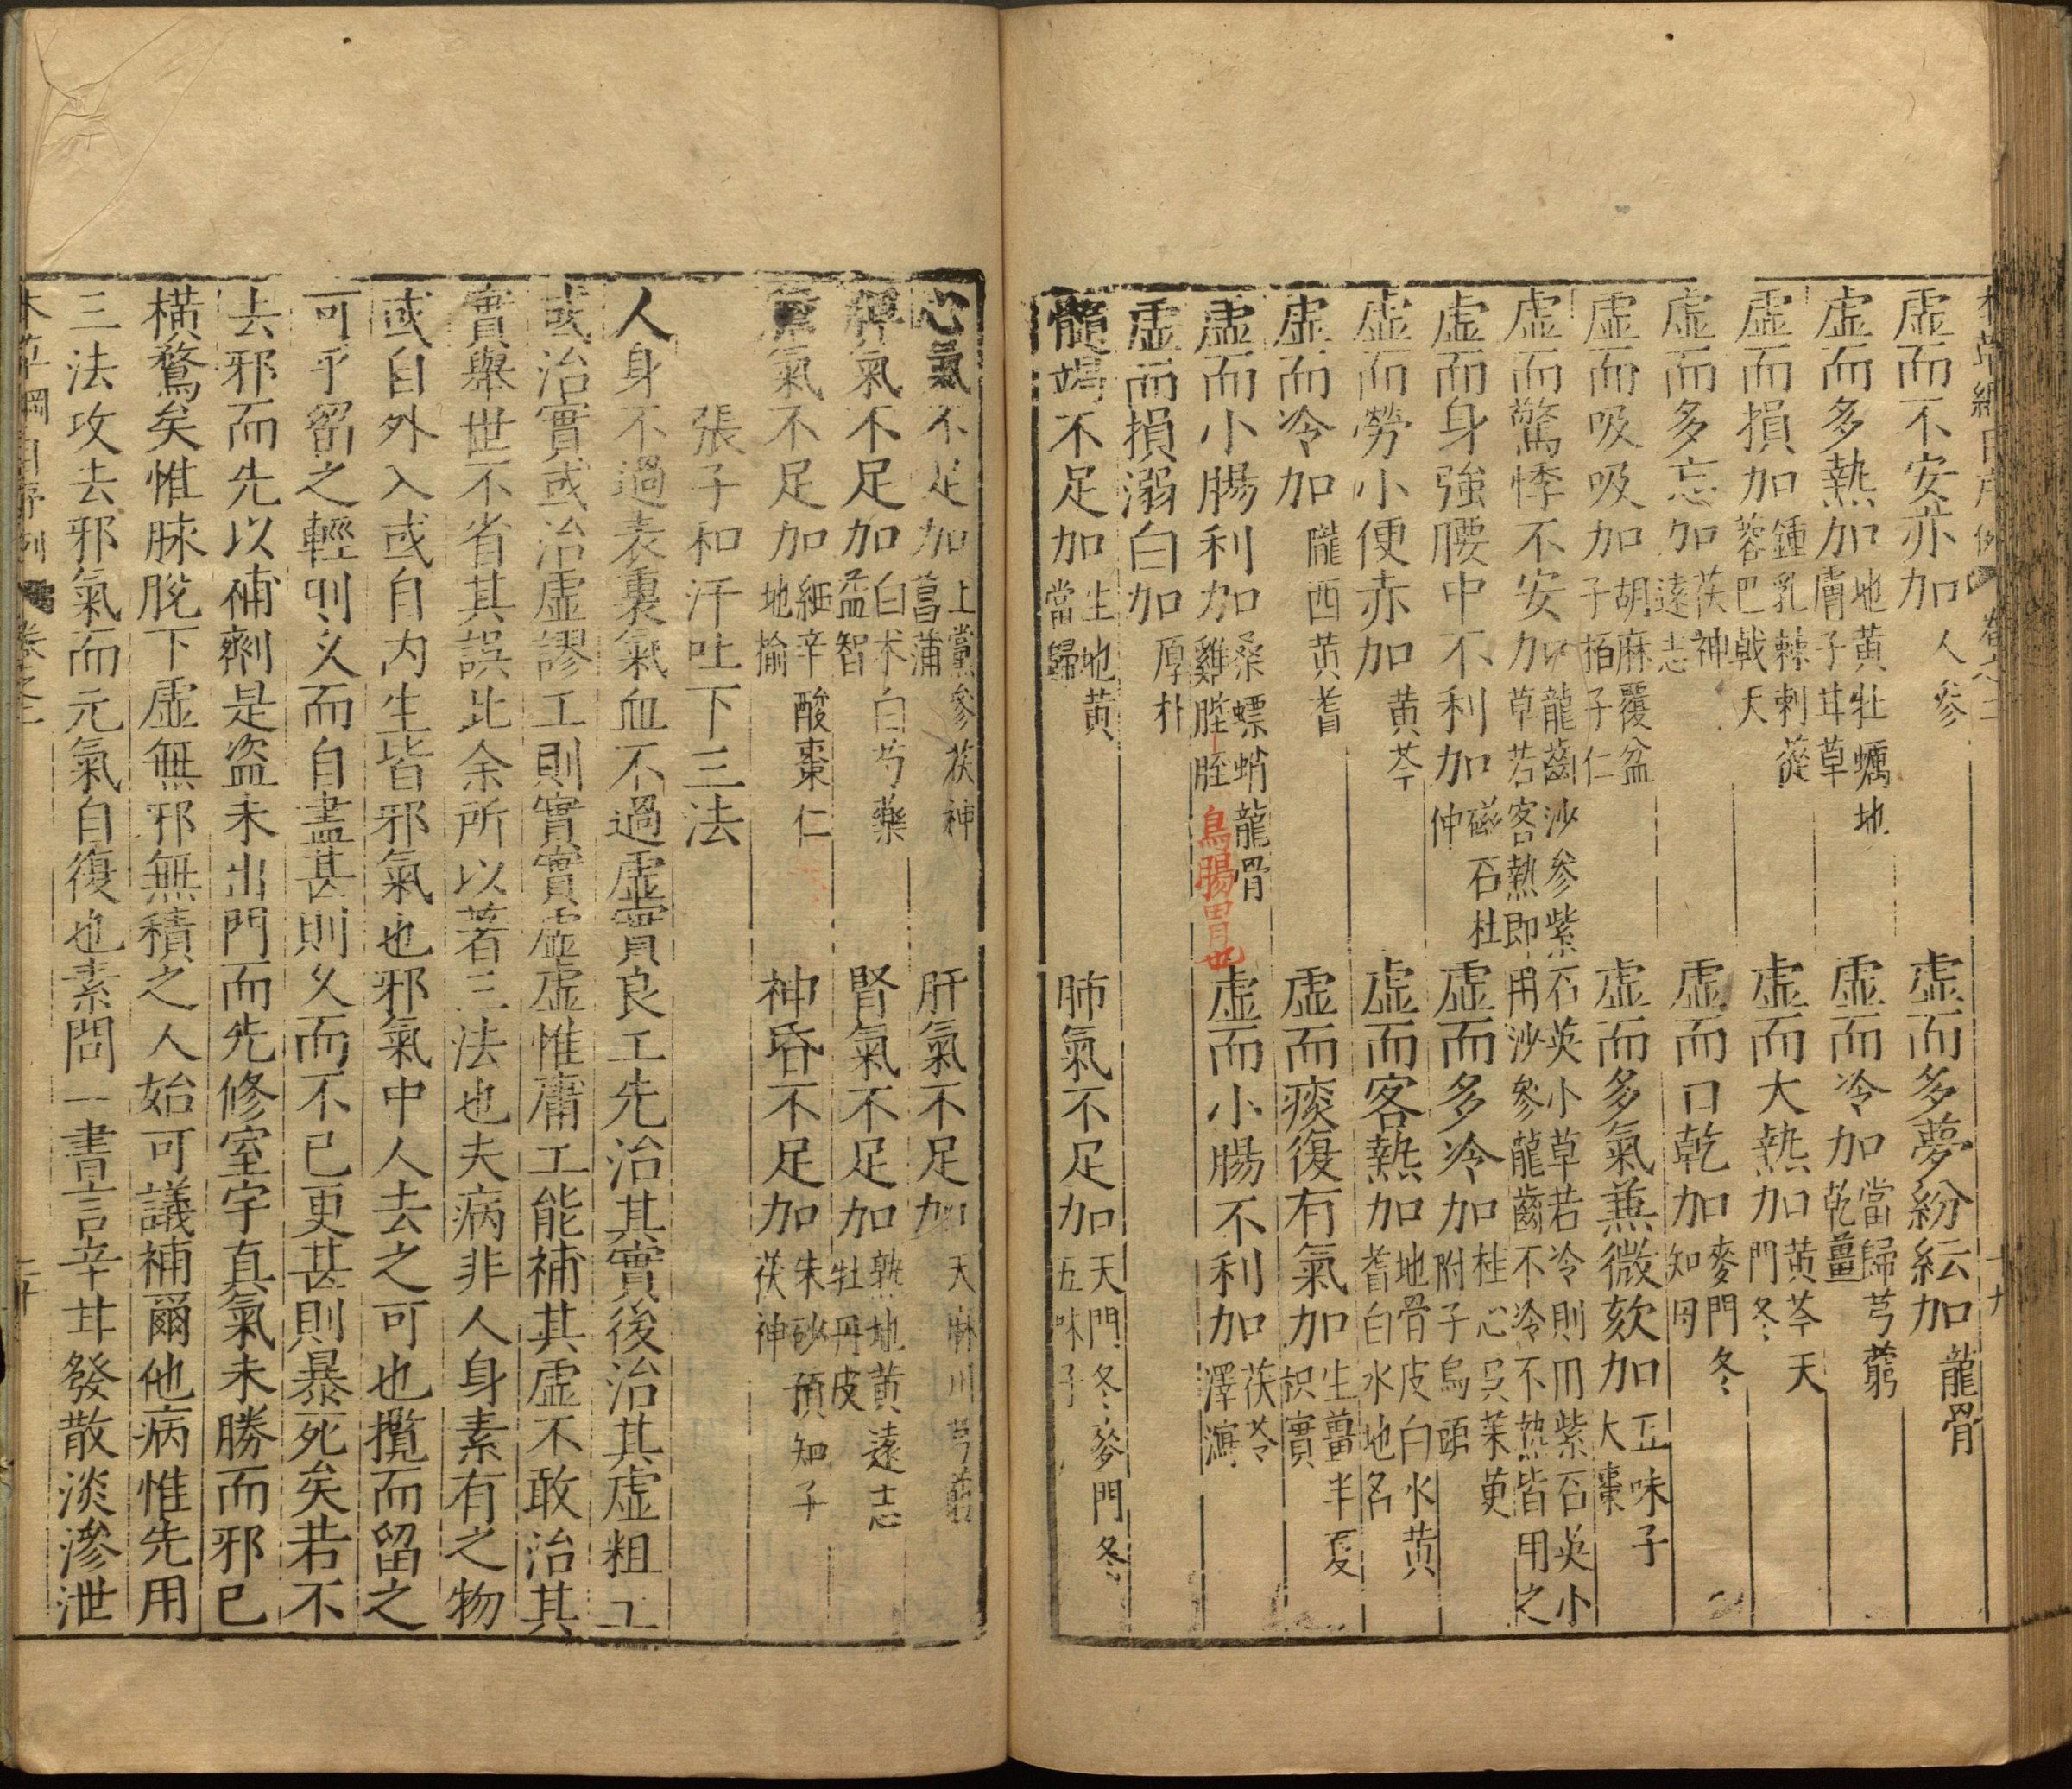 本草綱目序例 卷之二 十九
虛而不安亦加人參 虛而多夢紛紜加龍骨
虛而多熱加地黃牡蠣地膚子甘草 虛而冷加當歸芎藭乾薑
虛而損加鍾乳棘刺蓯蓉巴戟天 虛而大熱加黃芩天門冬
虛而多忘加茯神遠志 虛而口乾加麥門冬知母
虛而吸吸加胡麻覆盆子栢子仁 虛而多氣兼微欬加五味子大棗
虛而驚悸不安加龍齒沙參紫石英小草若冷則用紫石英小草若客熱即用沙參龍齒不冷不熱皆用之
虛而身強腰中不利加磁石杜仲 虛而多冷加桂心吳茱萸附子烏頭
虛而勞小便赤加黃芩 虛而客熱加地骨皮白水黃耆白水地名
虛而冷加隴西黃耆 虛而痰復有氣加生薑半夏枳實
虛而小腸利加桑螵蛸龍骨雞䏶胵鳥腸胃也 虛而小腸不利加茯苓澤瀉
虛而損溺白加厚朴
髓竭不足加生地黃當歸 肺氣不足加天門冬麥門冬五味子
心氣不足加上黨參茯神菖蒲 肝氣不足加天麻川芎藭
脾氣不足加白朮白芍藥益智 腎氣不足加熟地黃遠志牡丹皮
膽氣不足加細辛酸棗仁地榆 神昏不足加朱砂預知子茯神
張子和汗吐下三法
人身不過表裏氣血不過虛實良工先治其實後治其虛粗工
或治實或治虛謬工則實實虛虛惟庸工能補其虛不敢治其
實舉世不省其誤此余所以著三法也夫病非人身素有之物
或自外入或自内生皆邪氣也邪氣中人去之可也攬而留之
可乎留之輕則久而自盡甚則久而不已更甚則暴死矣若不
去邪而先以補劑是盜未出門而先修室宇真氣未勝而邪已
橫鶩矣惟脉脫下虛無邪無積之人始可議補爾他病惟先用
三法攻去邪氣而元氣自復也素問一書言辛甘發散淡滲泄
本草綱目序例 卷之二 二十